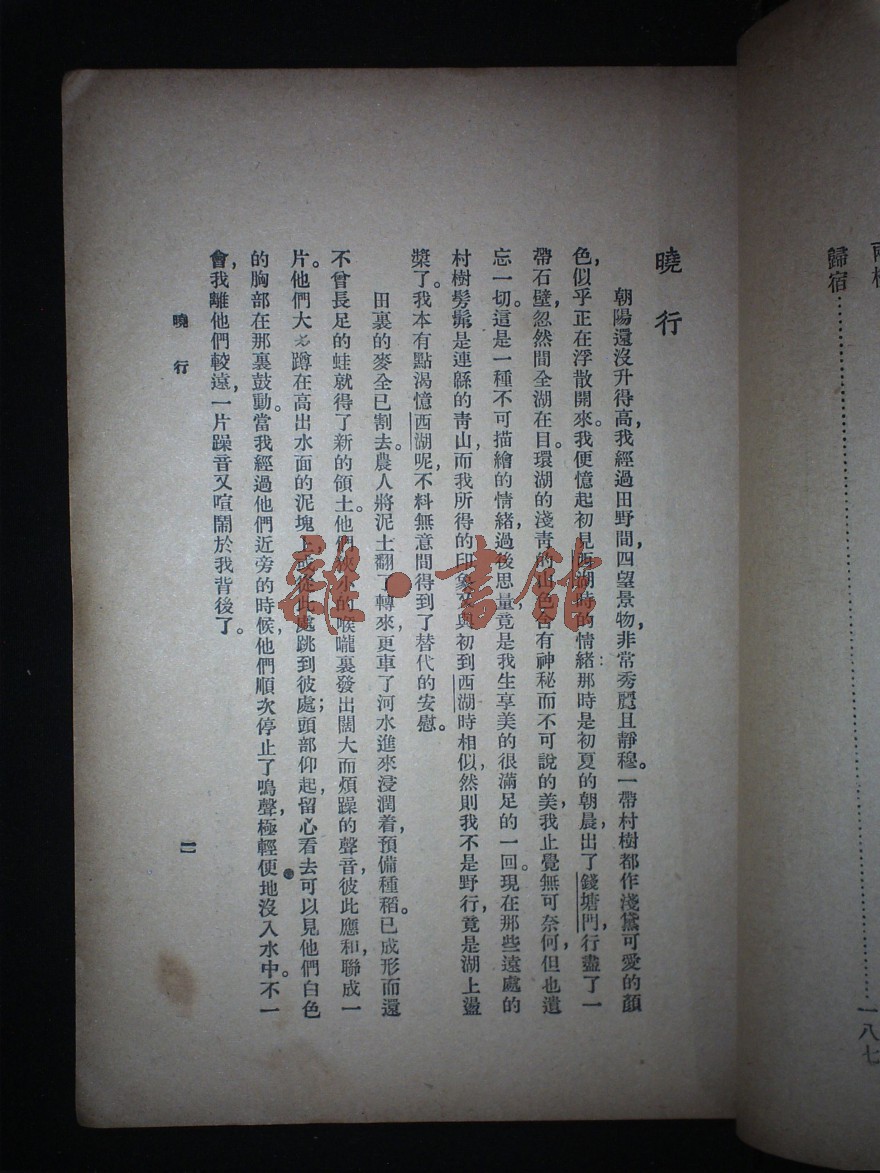 兩様
歸宿……………………………………一八七
曉行
朝陽還沒升得高，我經過田野間，四望景物，非常秀麗且靜穆。一帶村樹都作淺黛可愛的顏
色，似乎正在浮散開來。我便憶起初見西湖時的情緒：那時是初夏的朝晨，出了錢塘門，行盡了一
帶石壁，忽然間全湖在目。環湖的淺青的山色含有神秘而不可說的美，我止覺無可奈何，但也遺
忘一切。這是一種不可描繪的情緒，過後思量，竟是我生享美的很滿足的一回。現在那些遠處的
村樹髣髴是連緜的青山，而我所得的印象又與初到西湖時相似，然則我不是野行，竟是湖上盪
槳了。我本有點渴憶西湖呢，不料無意間得到了替代的安慰。
田裏的麥全已割去。農人將泥土翻了轉來，更車了河水進來浸潤着，預備種稻。已成形而還
不曾長足的蛙就得了新的領土。他們狹小的喉嚨裏發出闊大而煩躁的聲音，彼此應和，聯成一
片。他們大多蹲在高出水面的泥塊上，或從此處跳到彼處；頭部仰起，留心看去可以見他們白色
的胸部在那裏鼓動。當我經過他們近旁的時候，他們順次停止了鳴聲，極輕便地沒入水中。不一
會，我離他們較遠，一片躁音又喧鬧於我背後了。
曉行
一
雜·書館